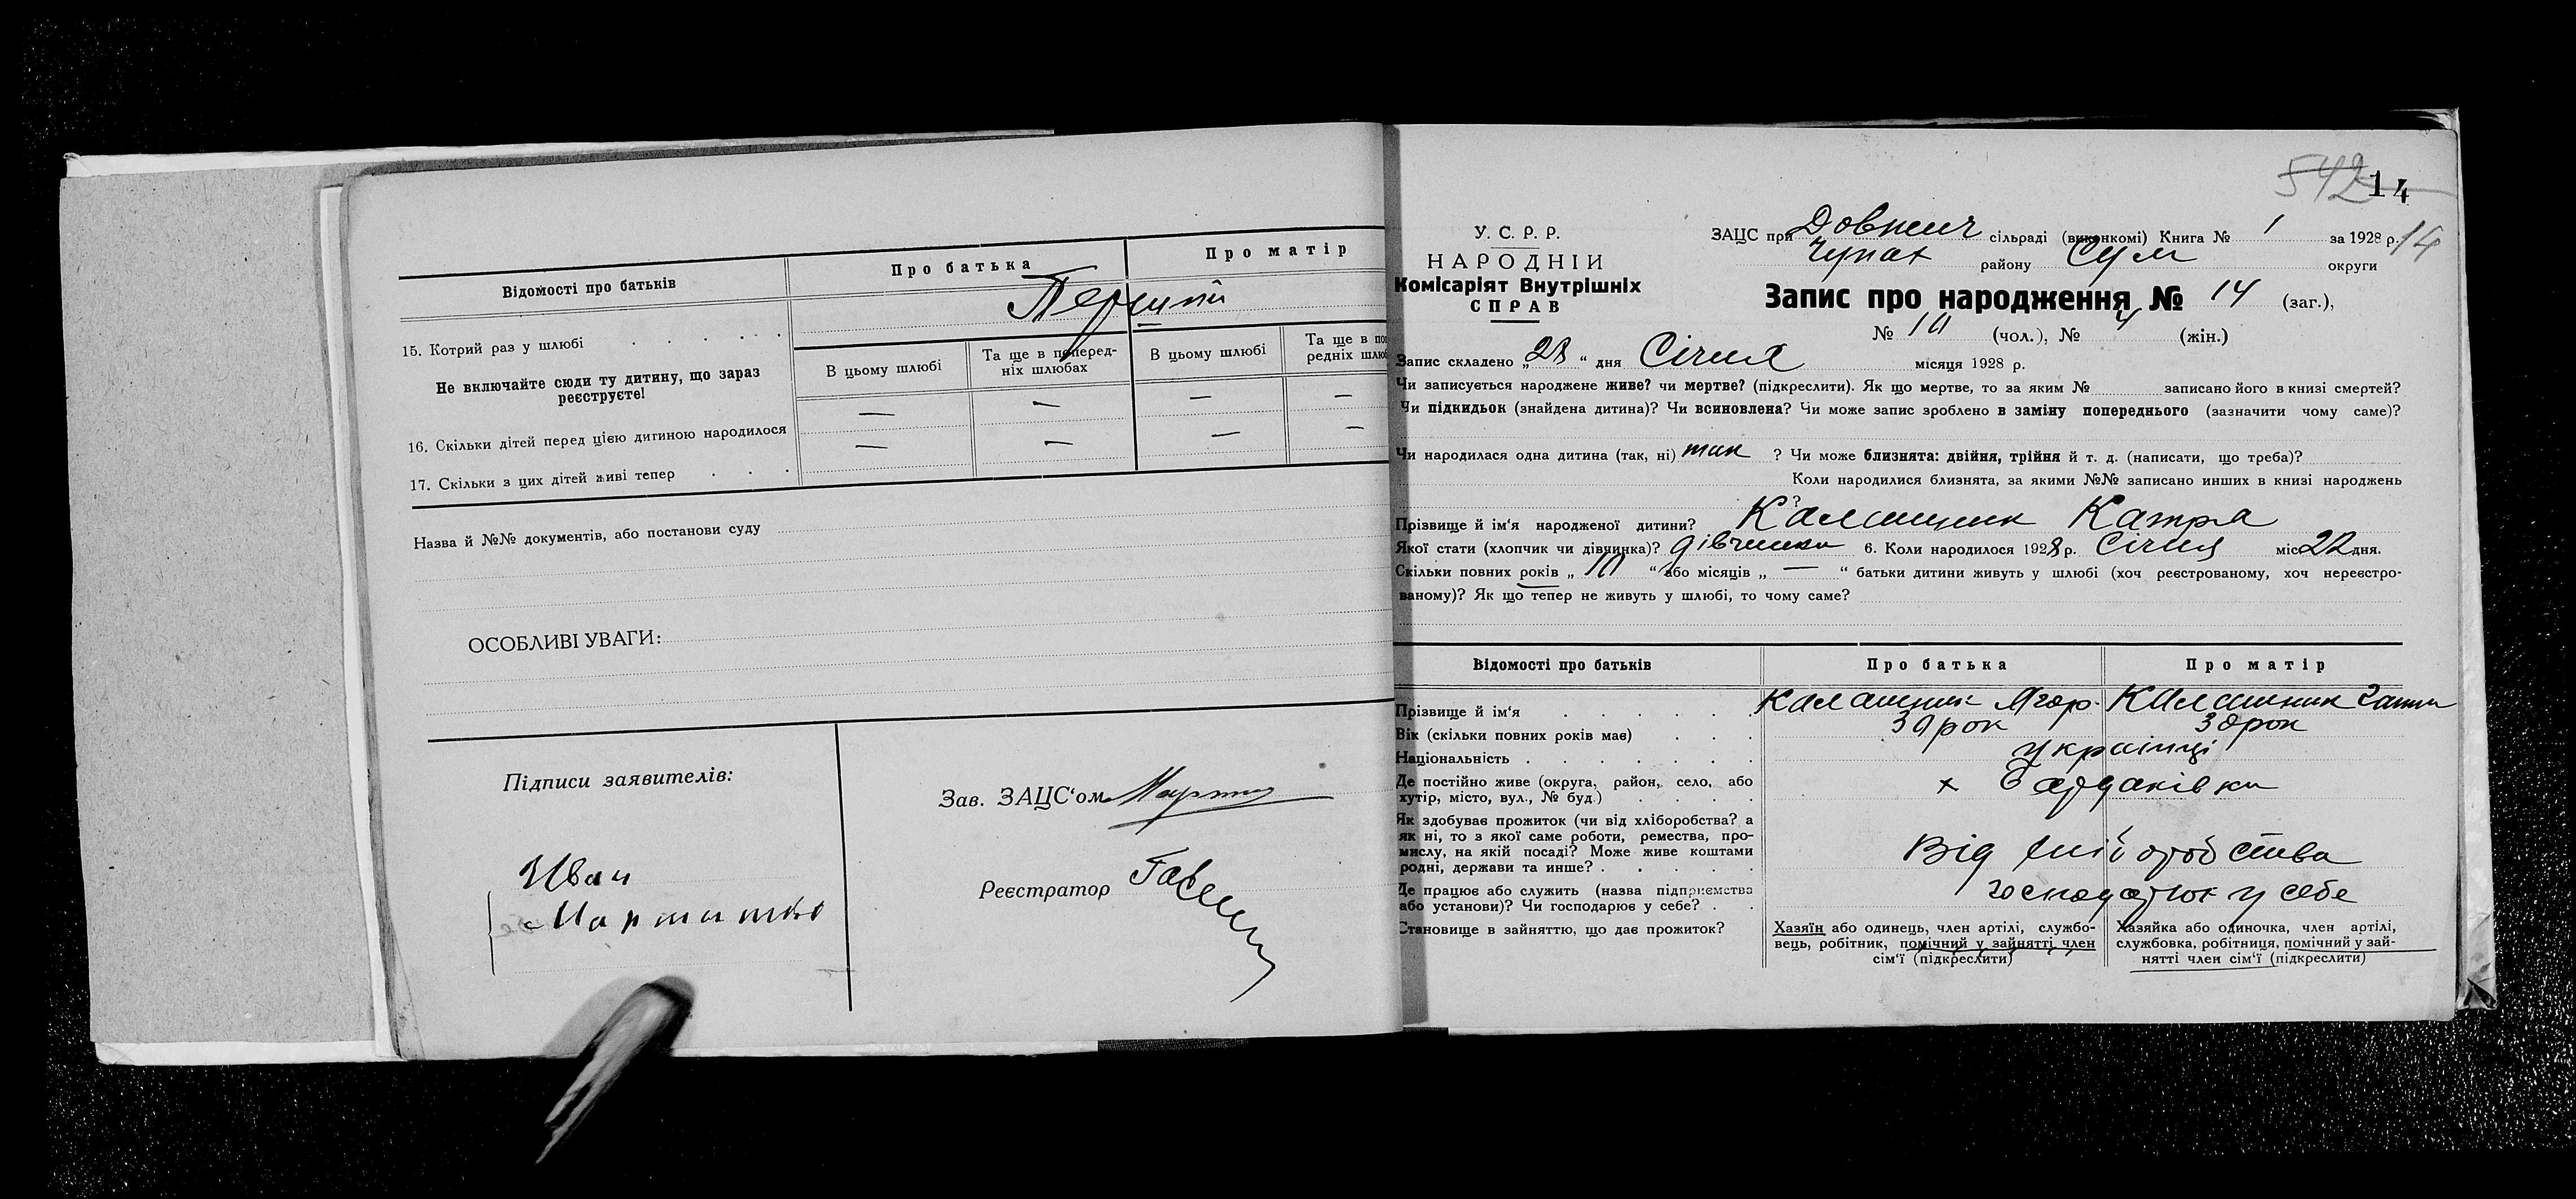 Відомості про батьків
Про батька
Про матір
15. Котрий раз у шлюбі
Перший
Не включайте сюди ту дитину, що зараз
реєструєте!
В цьому шлюбі
Та ще в поперед-
ніх шлюбах
В цьому шлюбі
Та ще в по
редніх шлю
16. Скільки дітей перед цією дитиною народилося
— — — —
17. Скільки з цих дітей живі тепер
— — — —
Назва й №№ документів, або постанови суду
ОСОБЛИВІ УВАГИ:
Підписи заявителів:
Иван
Зав. ЗАЦС'ом
Реєстратор
542 14
У. С. Р. Р.
НАРОДНІЙ
Комісаріят Внутрішніх
СПРАВ
ЗАЦС при Довжич сільраді (виконкомі) Книга № 1 за 1928 р. 14
Чупах району Сум округи
Запис про народження № 14 (заг.),
№ 10 (чол.), № 4 (жін.)
Запис складено „28“ дня Січня місяця 1928 р.
Чи записується народжене живе? чи мертве? (підкреслити). Як що мертве, то за яким № записано його в книзі смертей?
Чи підкидьок (знайдена дитина)? Чи всиновлена? Чи може запис зроблено в заміну попереднього (зазначити чому саме)?
Чи народилася одна дитина (так, ні) так ? Чи може близнята: двійня, трійня й т. д. (написати, що треба)?
Коли народилися близнята, за якими №№ записано инших в книзі народжень
?
Прізвище й ім'я народженої дитини? Калашник Катря
Якої стати (хлопчик чи дівчинка)? дівчинка 6. Коли народилося 1928 р. Січня міс 22 дня.
Скільки повних років „ 10 “ або місяців „ — “ батьки дитини живуть у шлюбі (хоч реєстрованому, хоч нереєстро-
ваному)? Як що тепер не живуть у шлюбі, то чому саме?
Відомості про батьків
Про батька
Про матір
Прізвище й ім'я
Калашник Ягор.
Калашник Ганна
Вік (скільки повних років має)
30 рок
30 рок
Національність
українці
Де постійно живе (округа, район, село, або
хутір, місто, вул., № буд.)
х Бардаківка
Як здобуває прожиток (чи від хліборобства? а
як ні, то з якої саме роботи, ремества, про-
мислу, на якій посаді? Може живе коштами
родні, держави та инше?
Від хліборобства
Де працює або служить (назва підприємства
або установи)? Чи господарює у себе?
господарюк у себе
Становище в зайняттю, що дає прожиток?
Хазяїн або одинець, член артілі, службо-
вець, робітник, помічний у зайнятті член
сім'ї (підкреслити)
Хазяйка або одиночка, член артілі,
службовка, робітниця, помічний у зай-
нятті член сім'ї (підкреслити)